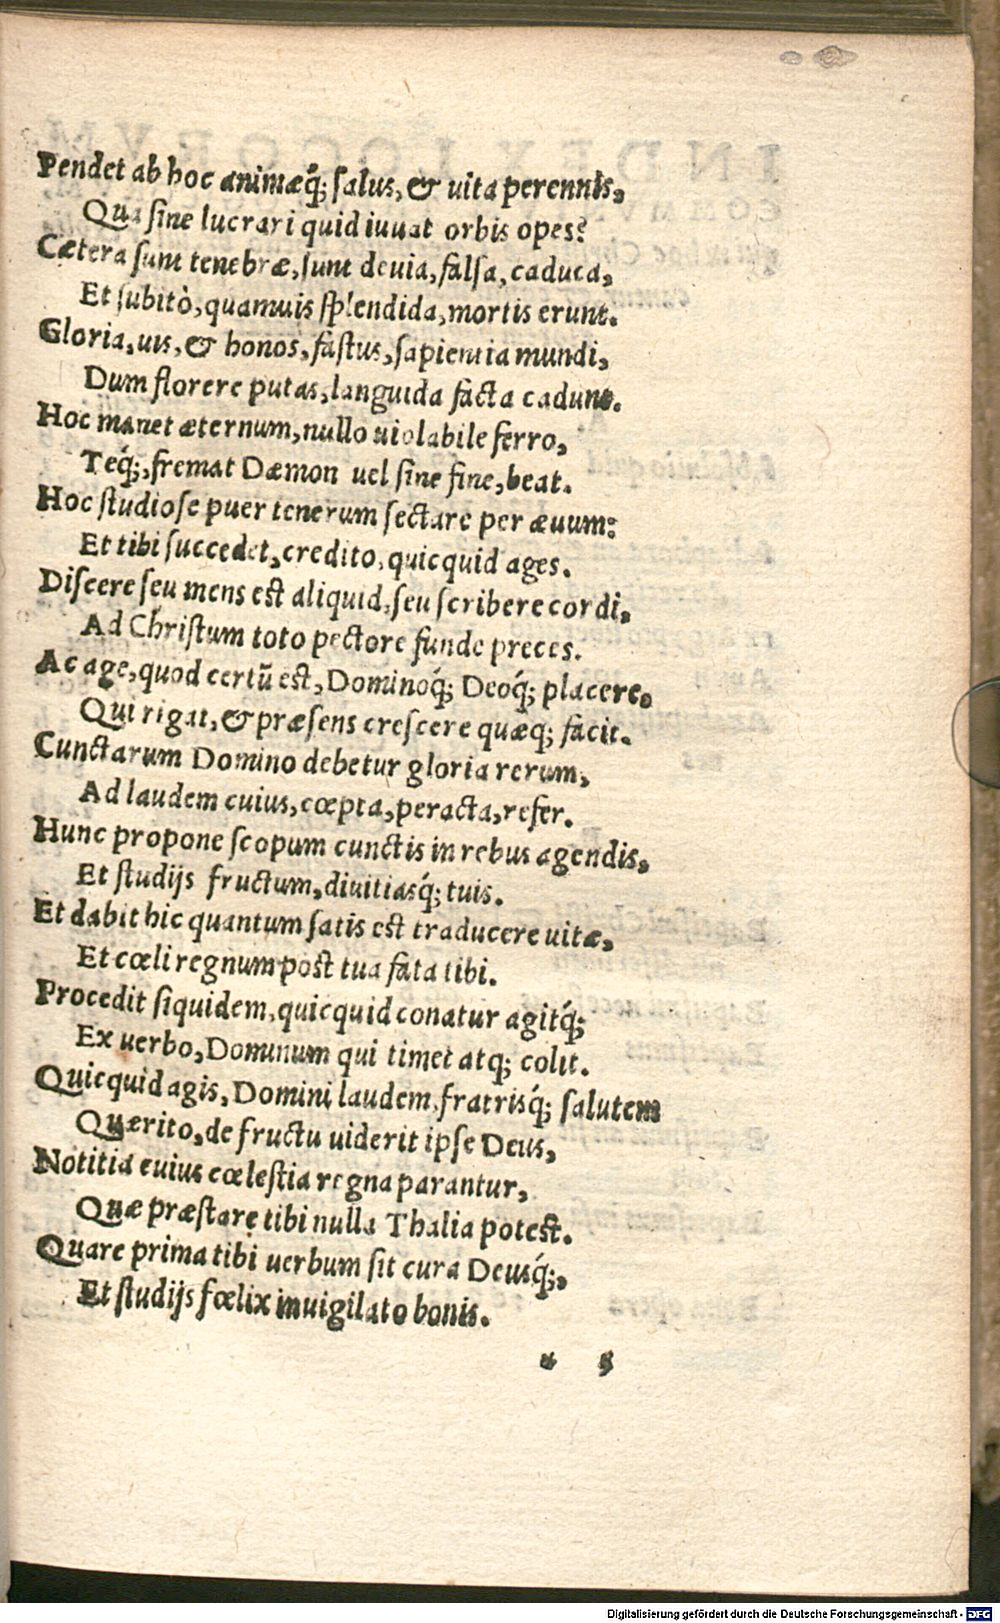 Pendet ab hoc animæq́; ſalus, & uita perennis,
Qua ſine lucrari quid iuuat orbis opes?
Cætera ſunt tenebræ, ſunt deuia, falſa, caduca,
Et ſubitò, quamuis ſplendida, mortis erunt.
Gloria, uis, & honos, faſtus, ſapientia mundi,
Dum florere putas, languida facta cadunt.
Hoc manet æternum, nullo uiolabile ferro,
Teq́;, fremat Dæmon uel ſine fine, beat.
Hoc ſtudioſe puer tenerum ſectare per æuum:
Et tibi ſuccedet, credito, quicquid ages.
Diſcere ſeu mens eſt aliquid, ſeu ſcribere cordi,
Ad Chriſtum toto pectore funde preces.
Ac age, quod certũ eſt, Dominoq́; Deoq́; placere,
Qui rigat, & præſens creſcere quæq; facit.
Cunctarum Domino debetur gloria rerum,
Ad laudem cuius, cœpta, peracta, refer.
Hunc propone ſcopum cunctis in rebus agendis,
Et ſtudijs fructum, diuitiasq́; tuis.
Et dabit hic quantum ſatis eſt traducere uitæ,
Et cœli regnum post tua fata tibi.
Procedit ſiquidem, quicquid conatur agitq́;
Ex uerbo, Dominum qui timet atq; colit.
Quicquid agis, Domini laudem, fratrisq́; ſalutem
Quærito, de fructu uiderit ipſe Deus,
Notitia cuius cœleſtia regna parantur,
Quæ præſtare tibi nulla Thalia potest.
Quare prima tibi uerbum ſit cura Deusq́;,
Et ſtudijs fœlix inuigilato bonis.
* 5
Digitalisierung gefördert durch die Deutsche Forschungsgemeinschaft - DFG